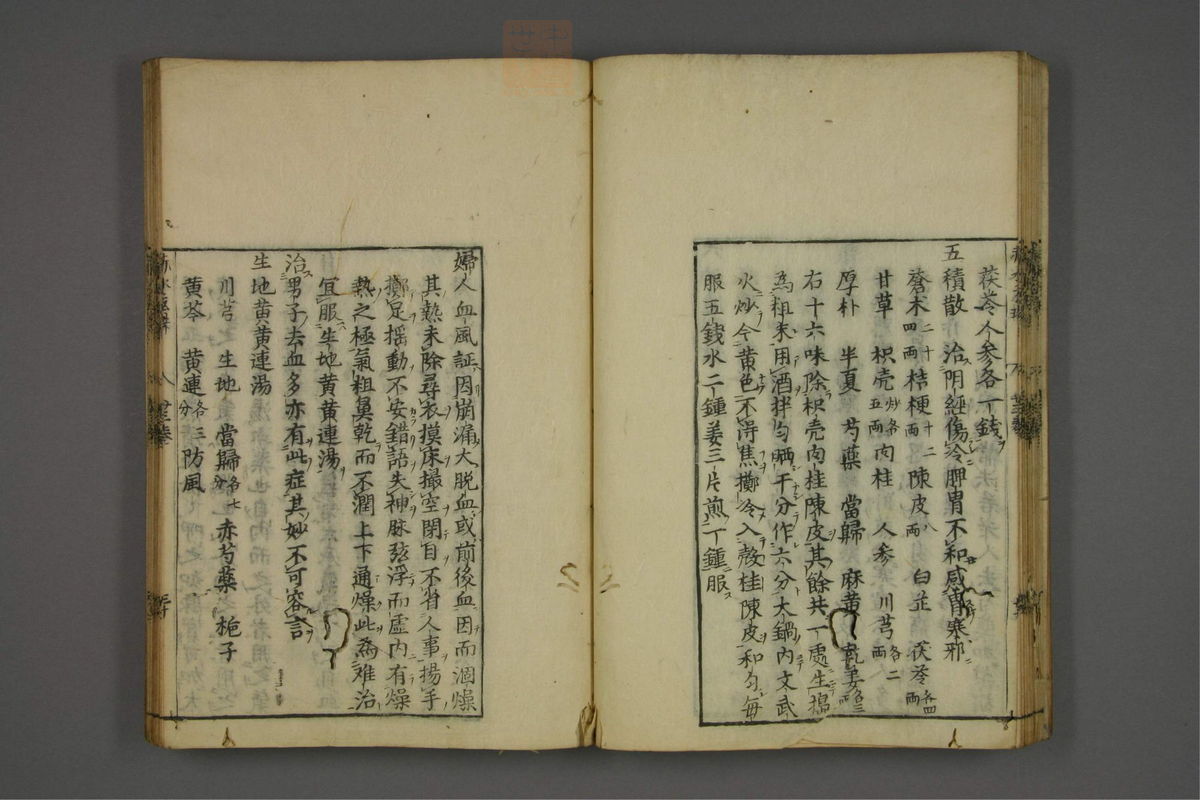 茯苓人参各一錢
五積散 治陰經傷冷脾胃不和感冒寒邪
蒼术二十四兩 桔梗十二兩 陳皮八兩 白芷 茯苓各四兩
甘草 枳壳炒各五兩 肉桂 人参 川芎各二兩
厚朴 半夏 芍藥 當歸 麻黄 乾姜各三兩
右十六味除枳壳肉桂陳皮其餘共一處生搗
為粗末用酒拌匀晒干分作六分大鍋内文武
火炒令黄色不得焦擲冷入殼桂陳皮和匀每
服五錢水二鍾姜三片煎一鍾服
婦人血風証因崩漏大脱血或前後血因而涸燥
其熱未除尋衣摸床撮空閉目不省人事揚手
擲足揺動不安錯語失神脉弦浮而虚内有燥
熱之極氣粗鼻乾而不潤上下通燥此為难治
宜服生地黄黄連湯
治男子去血多亦有此症其妙不可容言
生地黄黄連湯
川芎 生地 當歸各七分 赤芍藥 梔子
黄芩 黄連各三分 防風